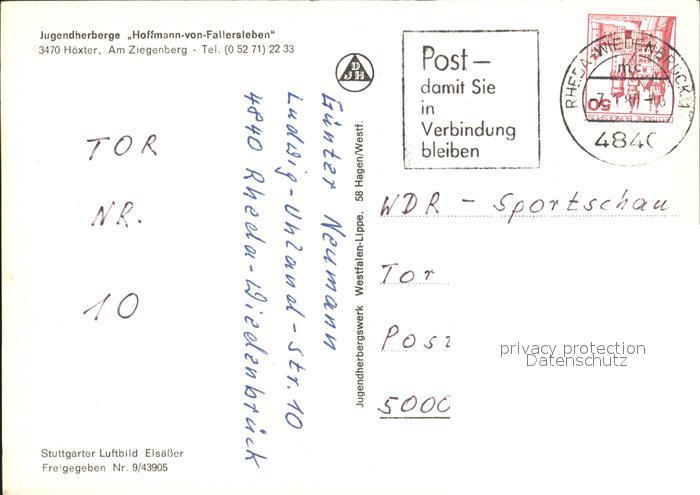 Jugendherberge „Hoffmann-von-Fallersleben“
3470 Höxter, Am Ziegenberg - Tel. (0 52 71) 22 33
DJH
Post –
damit Sie
in
Verbindung
bleiben
RHEDA-WIEDENBRÜCK 1
4840
50
DEUTSCHE BUNDESPOST
TOR
NR.
10
Günter Neumann
Ludwig-Uhland-Str. 10
4840 Rheda-Wiedenbrück
Jugendherbergswerk Westfalen-Lippe. 58 Hagen/Westf.
WDR - Sportschau
Tor
Post
5000
privacy protection
Datenschutz
Stuttgarter Luftbild Elsäßer
Freigegeben Nr. 9/43905